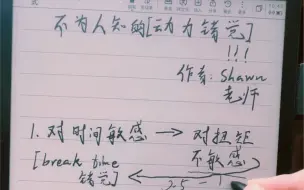 不为人知的[动力错觉]
!!!
作者: Shawn
老师
1. 对时间敏感 → 对扭矩
[break time 不敏感)
错觉] ← 2.5